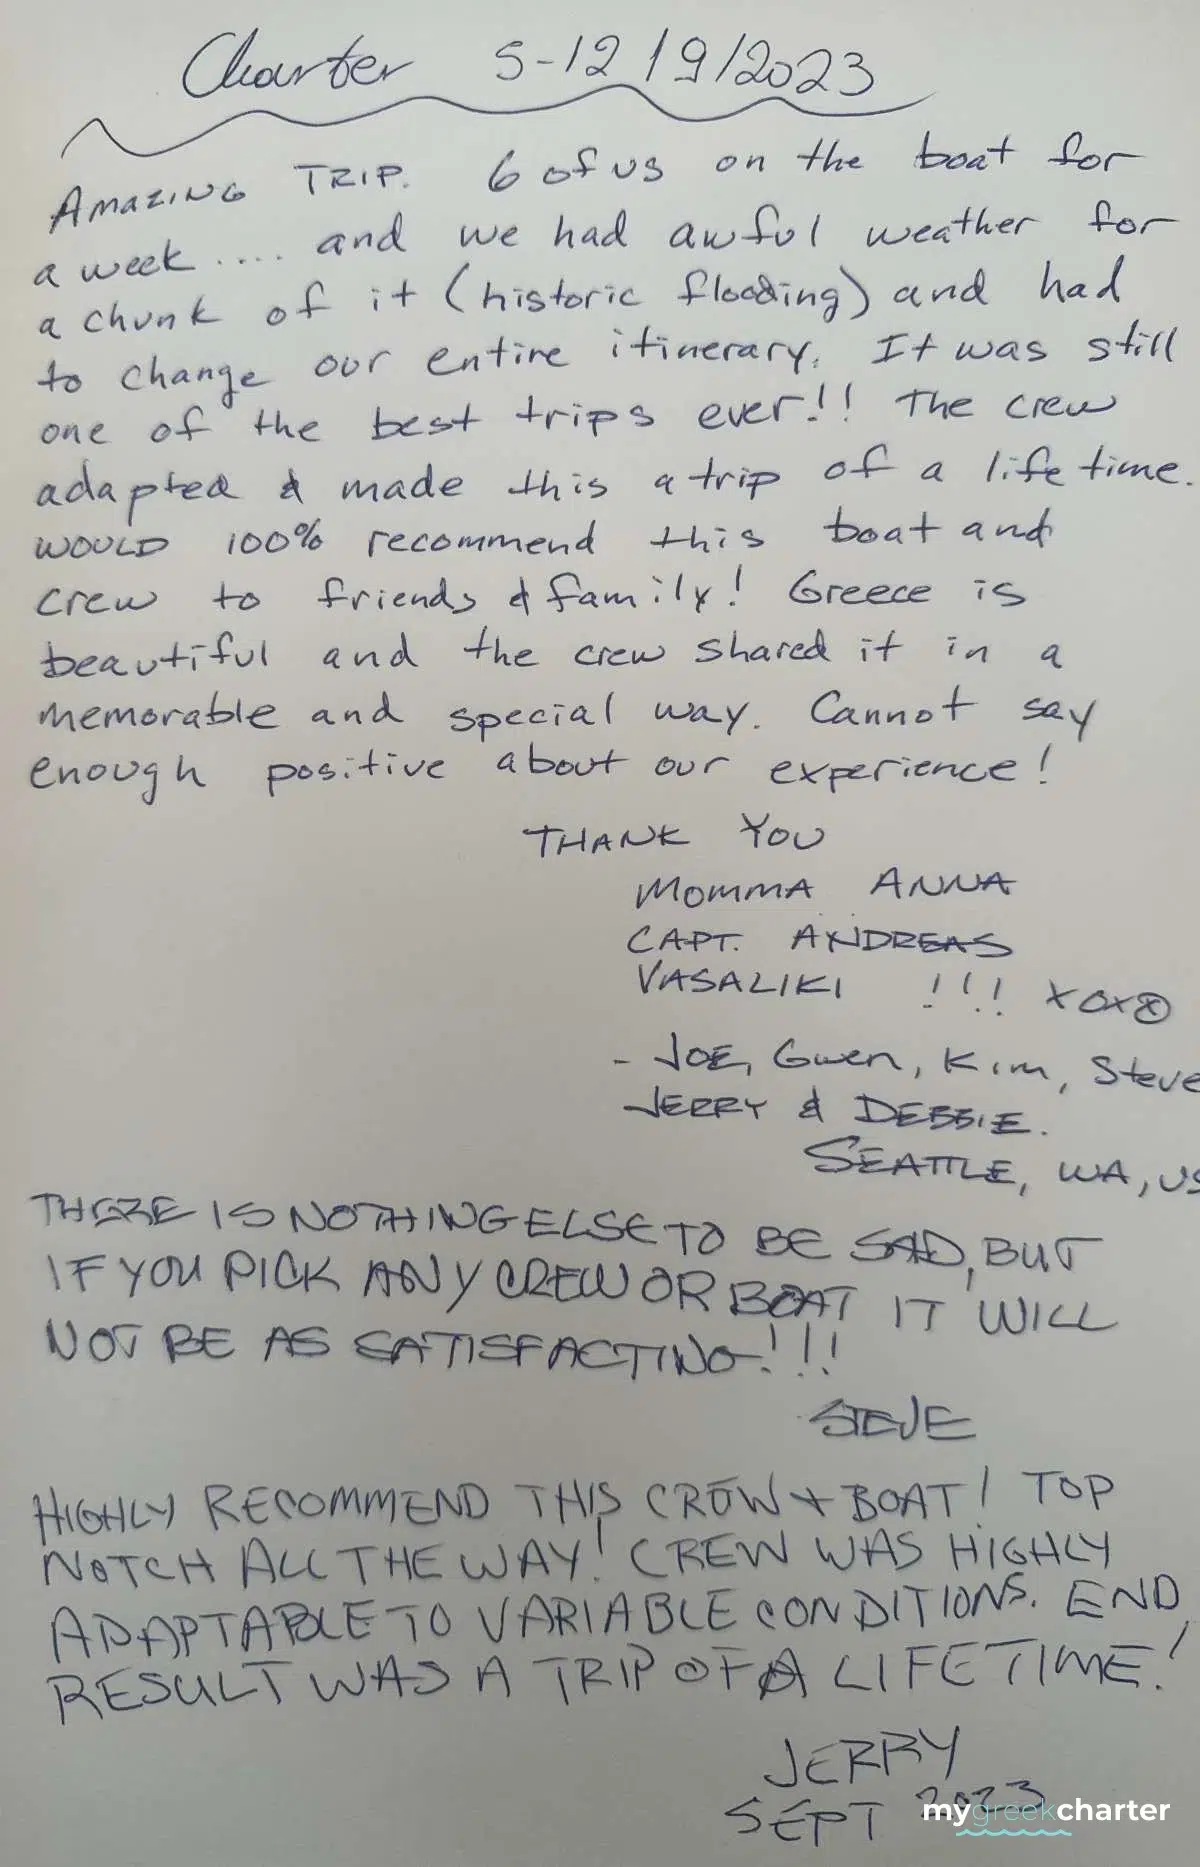 Charter 5-12/9/2023
AMAZING TRIP. 6 of us on the boat for
a week.... and we had awful weather for
a chunk of it (historic flooding) and had
to change our entire itinerary. It was still
one of the best trips ever!! The crew
adapted & made this a trip of a life time.
WOULD 100% recommend this boat and
crew to friends & family! Greece is
beautiful and the crew shared it in a
memorable and special way. Cannot say
enough positive about our experience!
THANK YOU
MOMMA ANNA
CAPT. ANDREAS
VASALIKI !!! XOXO
- JOE, Gwen, Kim, Steve
JERRY & DEBBIE.
SEATTLE, WA, US
THERE IS NOTHING ELSE TO BE SAD, BUT
IF YOU PICK ANY CREW OR BOAT IT WILL
NOT BE AS SATISFACTING!!!
STEVE
HIGHLY RECOMMEND THIS CREW + BOAT! TOP
NOTCH ALL THE WAY! CREW WAS HIGHLY
ADAPTABLE TO VARIABLE CONDITIONS. END
RESULT WAS A TRIP OF A LIFETIME!
JERRY
SEPT 2023
mygreekcharter